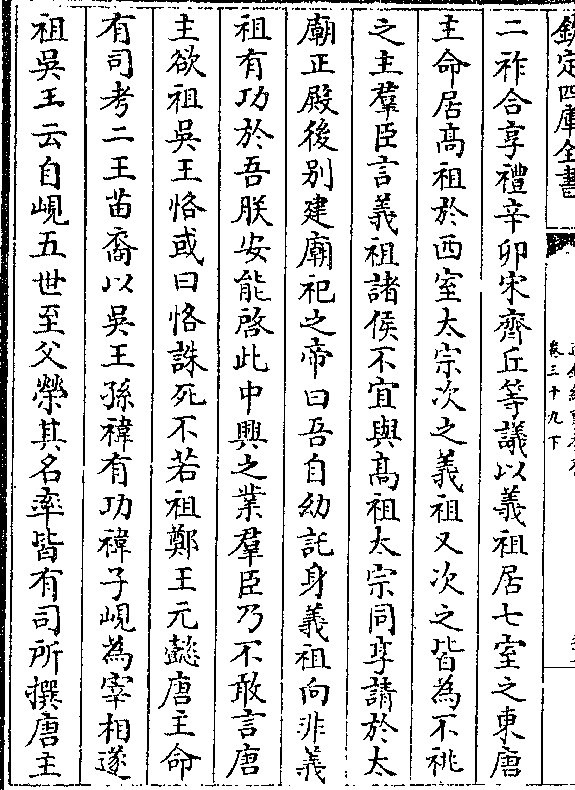 欽定四庫全書
卷三十九下
二祚合享禮辛卯宋齊丘等議以義祖居七室之東唐
主命居髙祖於西室太宗次之義祖又次之皆為不祧
之主羣臣言義祖諸侯不宜與髙祖太宗同享請於太
廟正殿後别建廟祀之帝曰吾自幼託身義祖向非義
祖有功於吾朕安能啓此中興之業羣臣乃不敢言唐
主欲祖吳王恪或曰恪誅死不若祖鄭王元懿唐主命
有司考二王苗裔以吳王孫禕有功禕子峴為宰相遂
祖吳王云自峴五世至父榮其名率皆有司所撰唐主